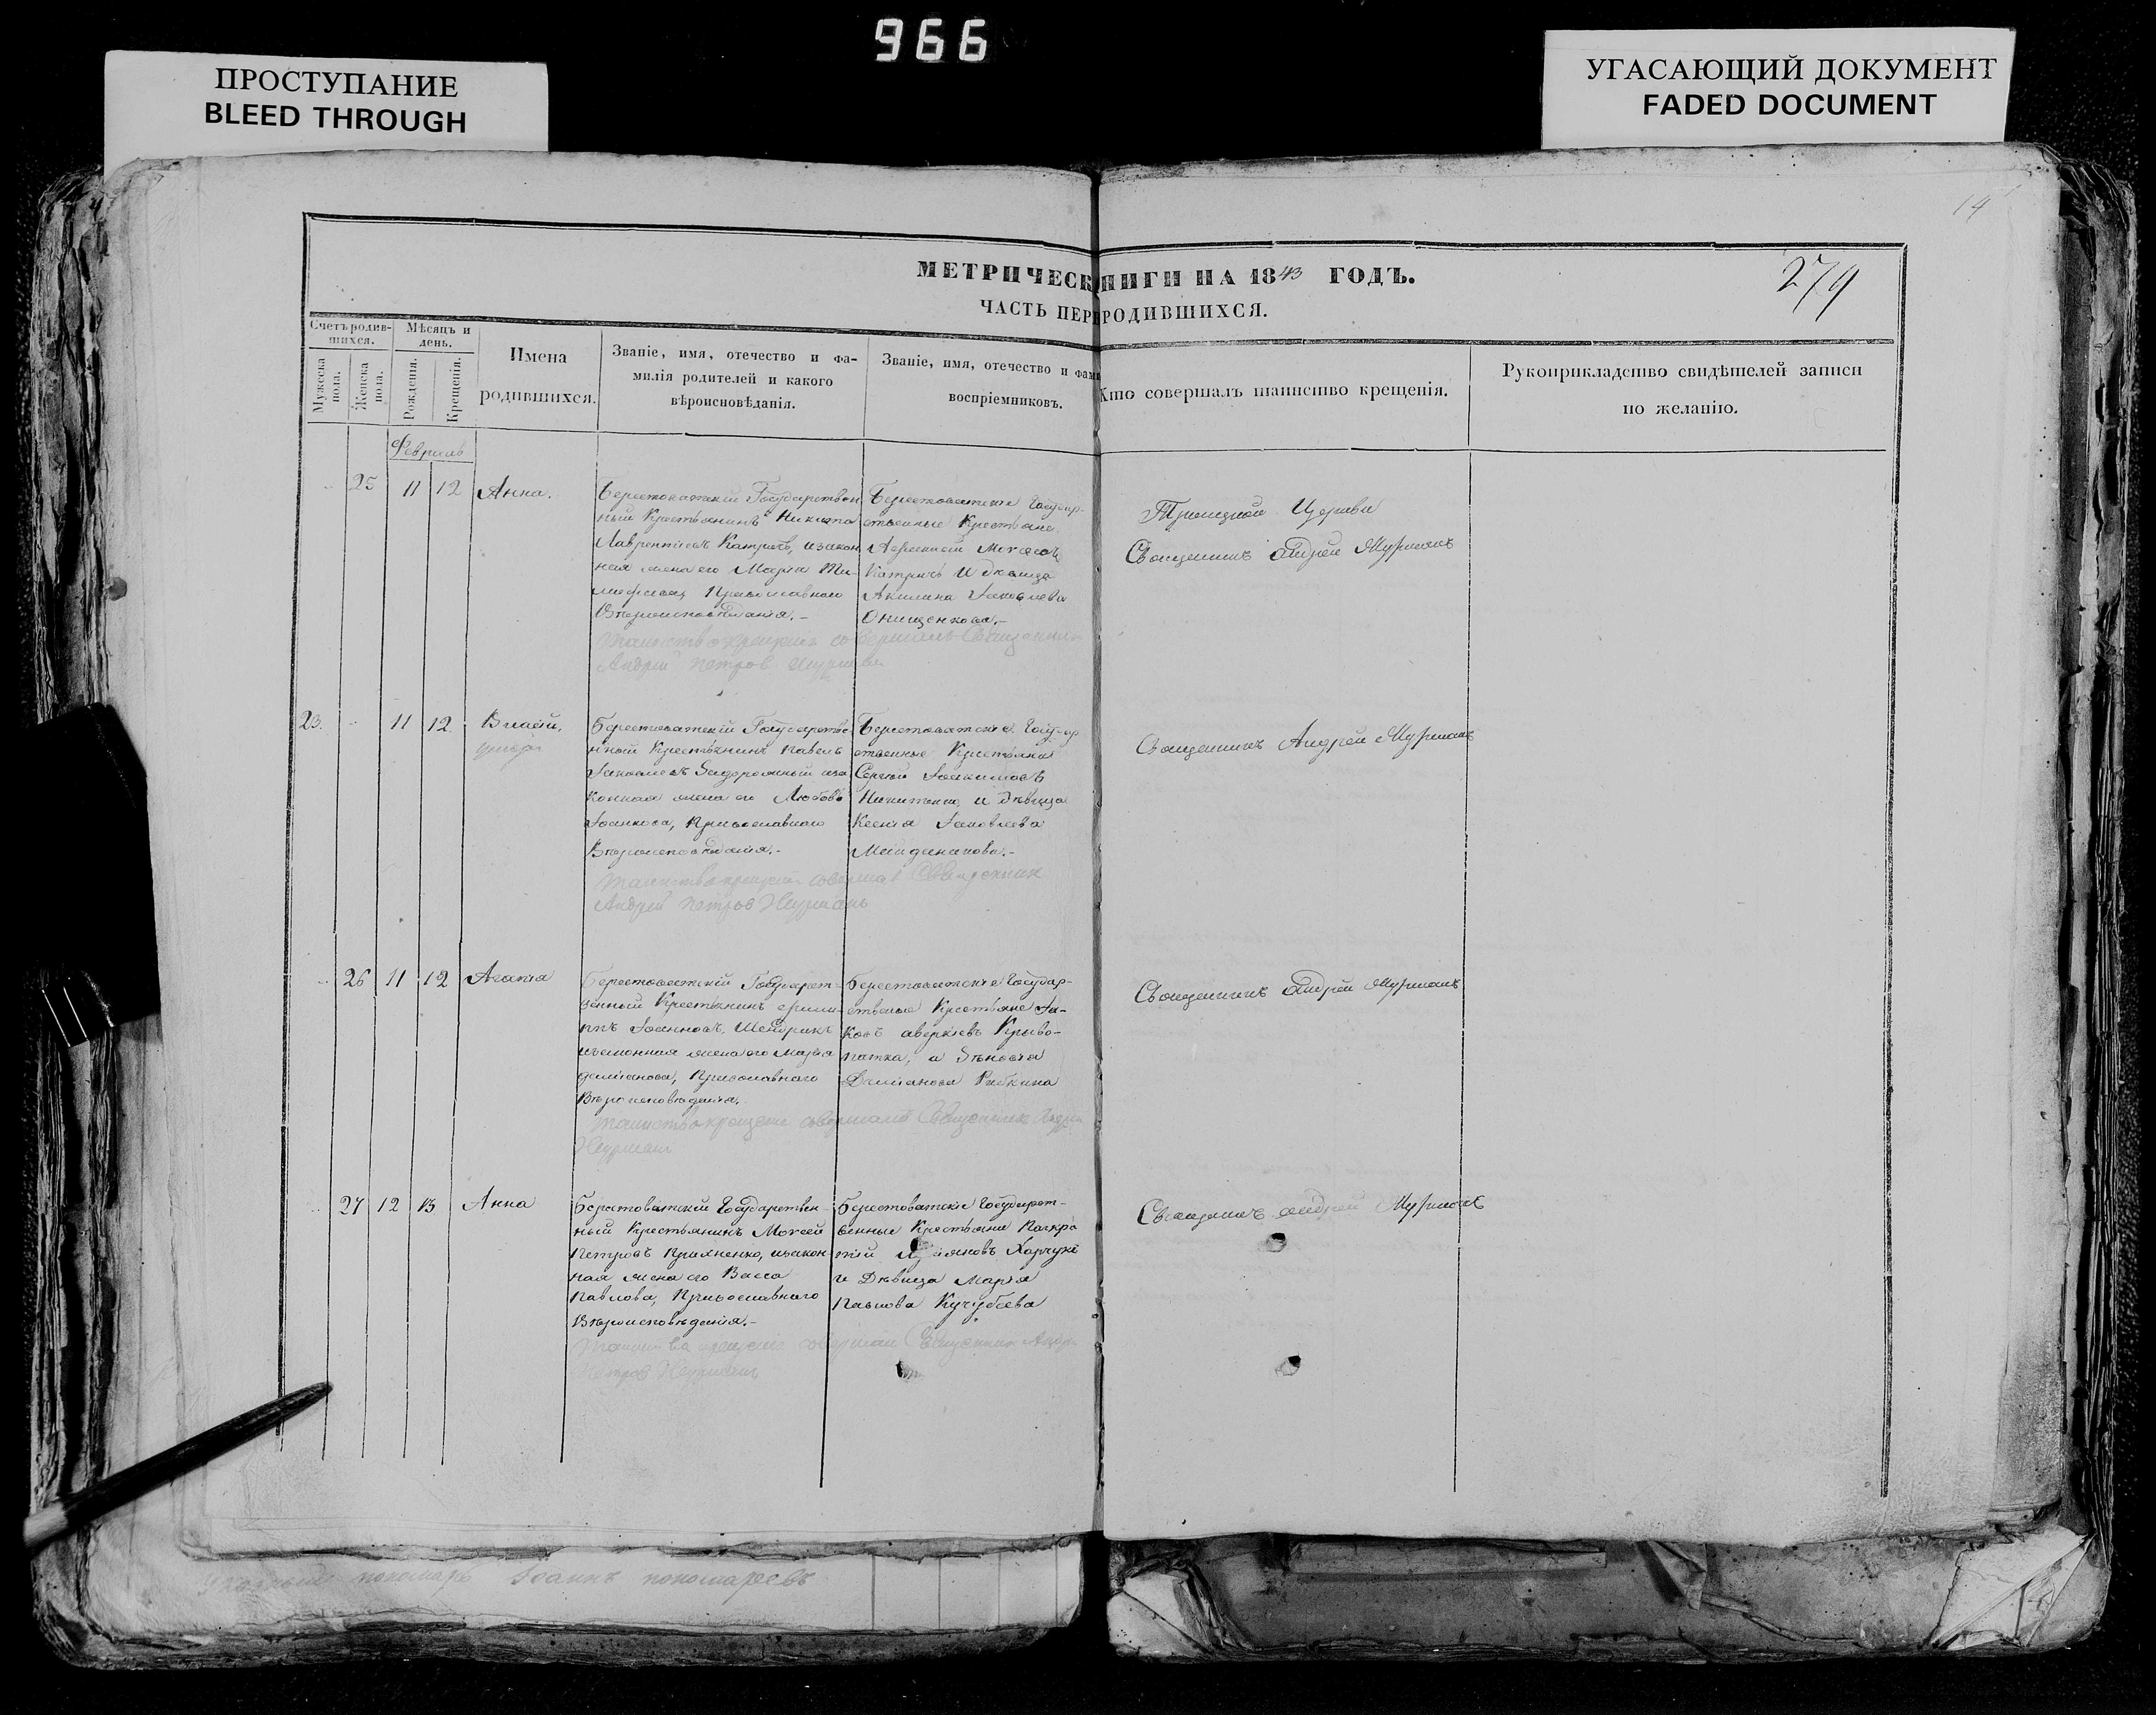 966
ПРОСТУПАНИЕ
BLEED THROUGH
УГАСАЮЩИЙ ДОКУМЕНТ
FADED DOCUMENT
14
МЕТРИЧЕСК НИГИ НА 1843 ГОДЪ.
279
ЧАСТЬ ПЕР РОДИВШИХСЯ.
Счетъ родив-
шихся.
Мужеска
пола.
Женска
пола.
Мѣсяцъ и
день.
Рожденія.
Крещенія.
Имена
родившихся.
Званіе, имя, отечество и фа-
милія родителей и какого
вѣроисповѣданія.
Званіе, имя, отечество и фами
воспріемниковъ.
Кто совершалъ таинство крещенія.
Рукоприкладство свидѣтелей записи
по желанію.
Февраль
25 11 12 Анна.
Берестоватскій Государствен
ный Крестьянинъ Никита
Лаврентіевъ Катричъ, изакон
ная жена его Марѳа Ти-
моѳеева, Православнаго
Вѣроисповѣданія.-
Таинство крещенія совершалъ Священник
Андрей Петров
Берестоватскіе Государ-
ственные Крестьяне
Катричъ и дѣвица
Акилина Іаковлева
Онищенкова.-
Троицкой Церкви
Священникъ Андрей
23. 11 12 Власій,
умеръ
Берестоватскій Государстве
нный Крестьянинъ Павелъ
Іаковлевъ Задорожный иза
конная жена его Любовь
Іоаннова, Православнаго
Вѣроисповѣданія.-
Таинство крещенія совершал Священник
Андрей Петров
Берестоватскіе Государ
ственные Крестьяне
Сергій Іоакимовъ
Никитенко, и дѣвица
Ксенія Іаковлева
Майданикова.-
Священникъ Андрей
26 11 12 Агапія
Берестоватскій Государст-
венный Крестьянинъ
Іоанновъ, Шендрикъ
изаконная жена его Марѳа
Даміанова, Православнаго
Вѣроисповѣданія.
Таинство крещенія совершалъ Священник Андрей
Берестоватскіе Государ-
ственные Крестьяне Іа-
ковъ Аверкіевъ Криво-
патка, и Зѣновія
Даміанова Рибкина
Священникъ Андрей
27 12 13 Анна
Берестоватскій Государствен-
ный Крестьянинъ Моѵсей
Петровъ изакон-
ная жена его Васса
Павлова, Православнаго
Вѣроисповѣданія.-
Таинства крещенія совершал Священник Андрей
Петров
Берестоватскіе Государст-
венные Крестьяне Панкра
тій
и Дѣвица Марія
Павлова Кучубеева
Священникъ Андрей
пономарь Іоаннъ Пономаревъ